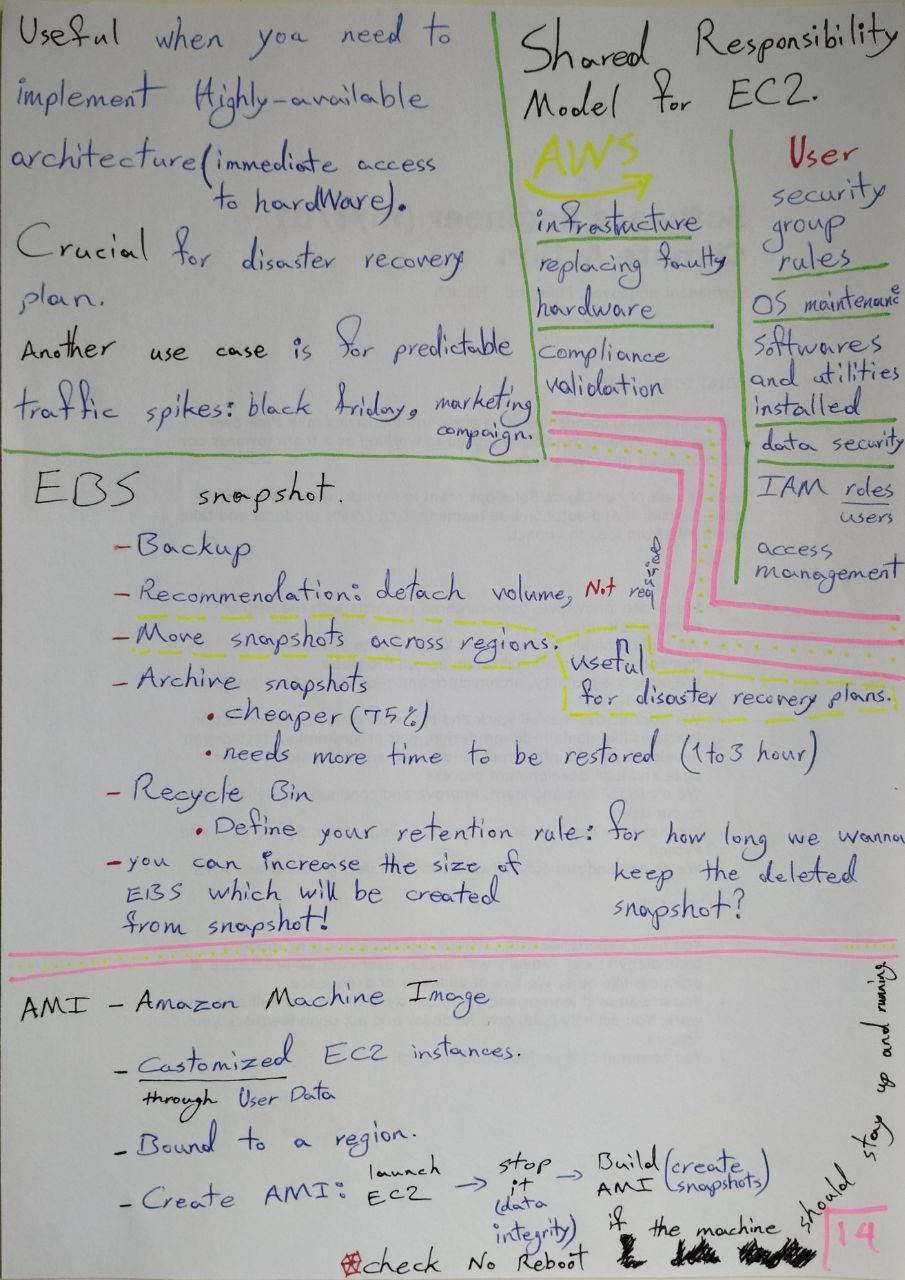 Useful when you need to
implement Highly-available
architecture (immediate access
to hardware).
Crucial for disaster recovery
plan.
Another use case is for predictable
traffic spikes: black friday, marketing
compaign.
Shared Responsibility
Model for EC2.
AWS
infrasturcture
replacing faulty
hardware
compliance
validation
User
security
group
rules
OS maintenance
softwares
and utilities
installed
data security
IAM roles
users
access
management
EBS snapshot.
- Backup
- Recommendation: detach volume, Not required
- Move snapshots across regions.
useful
for disaster recovery plans.
- Archive snapshots
• cheaper (75%)
• needs more time to be restored (1 to 3 hour)
- Recycle Bin
• Define your retention rule: for how long we wanna
keep the deleted
snapshot?
- you can increase the size of
EBS which will be created
from snapshot!
AMI - Amazon Machine Image
- Customized EC2 instances.
through User Data
- Bound to a region.
- Create AMI: launch
EC2
→ stop
it
(data
integrity)
→ Build
AMI (create
snapshots)
check No Reboot if the machine should stay up and running
14